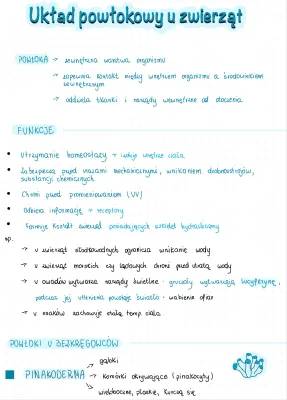 Układ powłokowy u zwierząt
POWŁOKA → zewnętrzna warstwa organizmu
→ zapewnia kontakt między wnętrzem organizmu a środowiskiem
zewnętrznym
→ oddziela tkanki i narządy wewnętrzne od otoczenia
FUNKCJE
• Utrzymanie homeostazy → wnętrze ciała
• Zabezpiecza przed urazami mechanicznymi, wnikaniem drobnoustrojów,
substancji chemicznych
• Chroni przed promieniowaniem (UV)
• Odbiera informacje → receptory
• Formuje kształt zwierząt posiadających szkielet hydrauliczny
np.
→ u zwierząt słodkowodnych ogranicza wnikanie wody
→ u zwierząt morskich czy lądowych chroni przed utratą wody
→ u owadów wytwarza narządy świetlne - gruczoły wytwarzają lucyferynę,
podczas jej utleniania powstaje światło - wabienie ofiar
→ u ssaków zachowuje stałą temp. ciała
POWŁOKI U BEZKRĘGOWCÓW
gąbki
PINAKODERMA → komórki okrywające (pinakocyty)
wieloboczne, płaskie, kurczą się